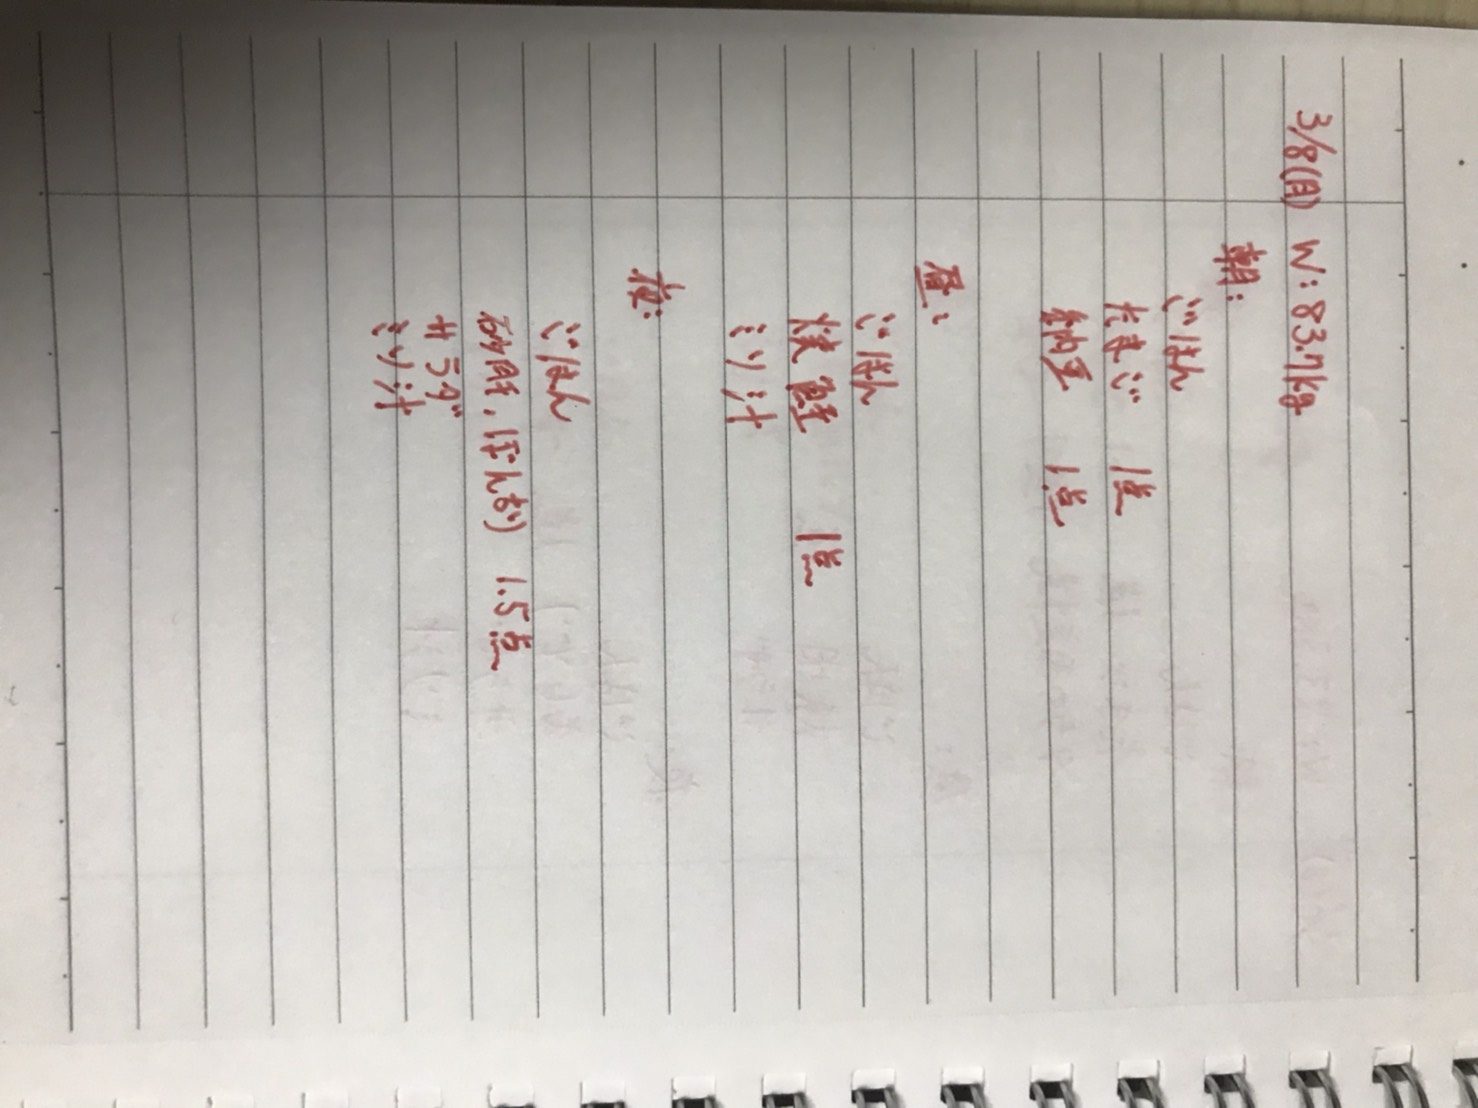 3/8(月) W:83.7kg
朝:
ごはん
たまご 1点
納豆 1点
昼:
ごはん
焼鮭 1点
ミソ汁
夜:
ごはん
砂肝,ぼんぢり 1.5点
サラダ
ミソ汁